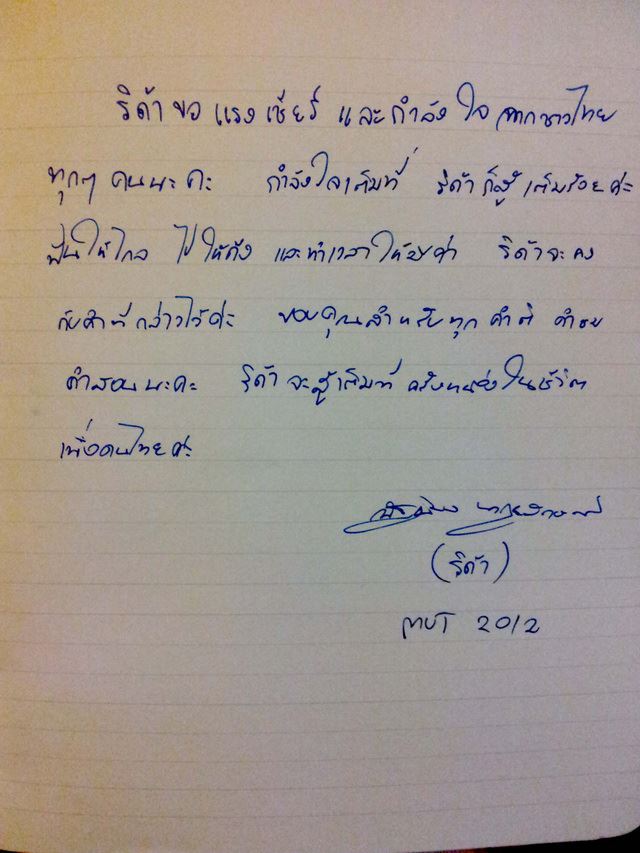 ริด้าขอ แรงเชียร์ และกำลังใจ จากชาวไทย
ทุกๆ คนนะคะ กำลังใจเต็มที่ ริด้าก็สู้เต็มร้อยค่ะ
ฝันให้ไกล ไปให้ถึง และทำเวลาให้มีค่า ริด้าจะคง
กับคำที่กล่าวไว้ค่ะ ขอบคุณสำหรับทุกคำติ คำชม
คำสอนนะคะ ริด้าจะสู้เต็มที่ ครั้งหนึ่งในชีวิต
เพื่อคนไทยค่ะ
(ริด้า)
2012